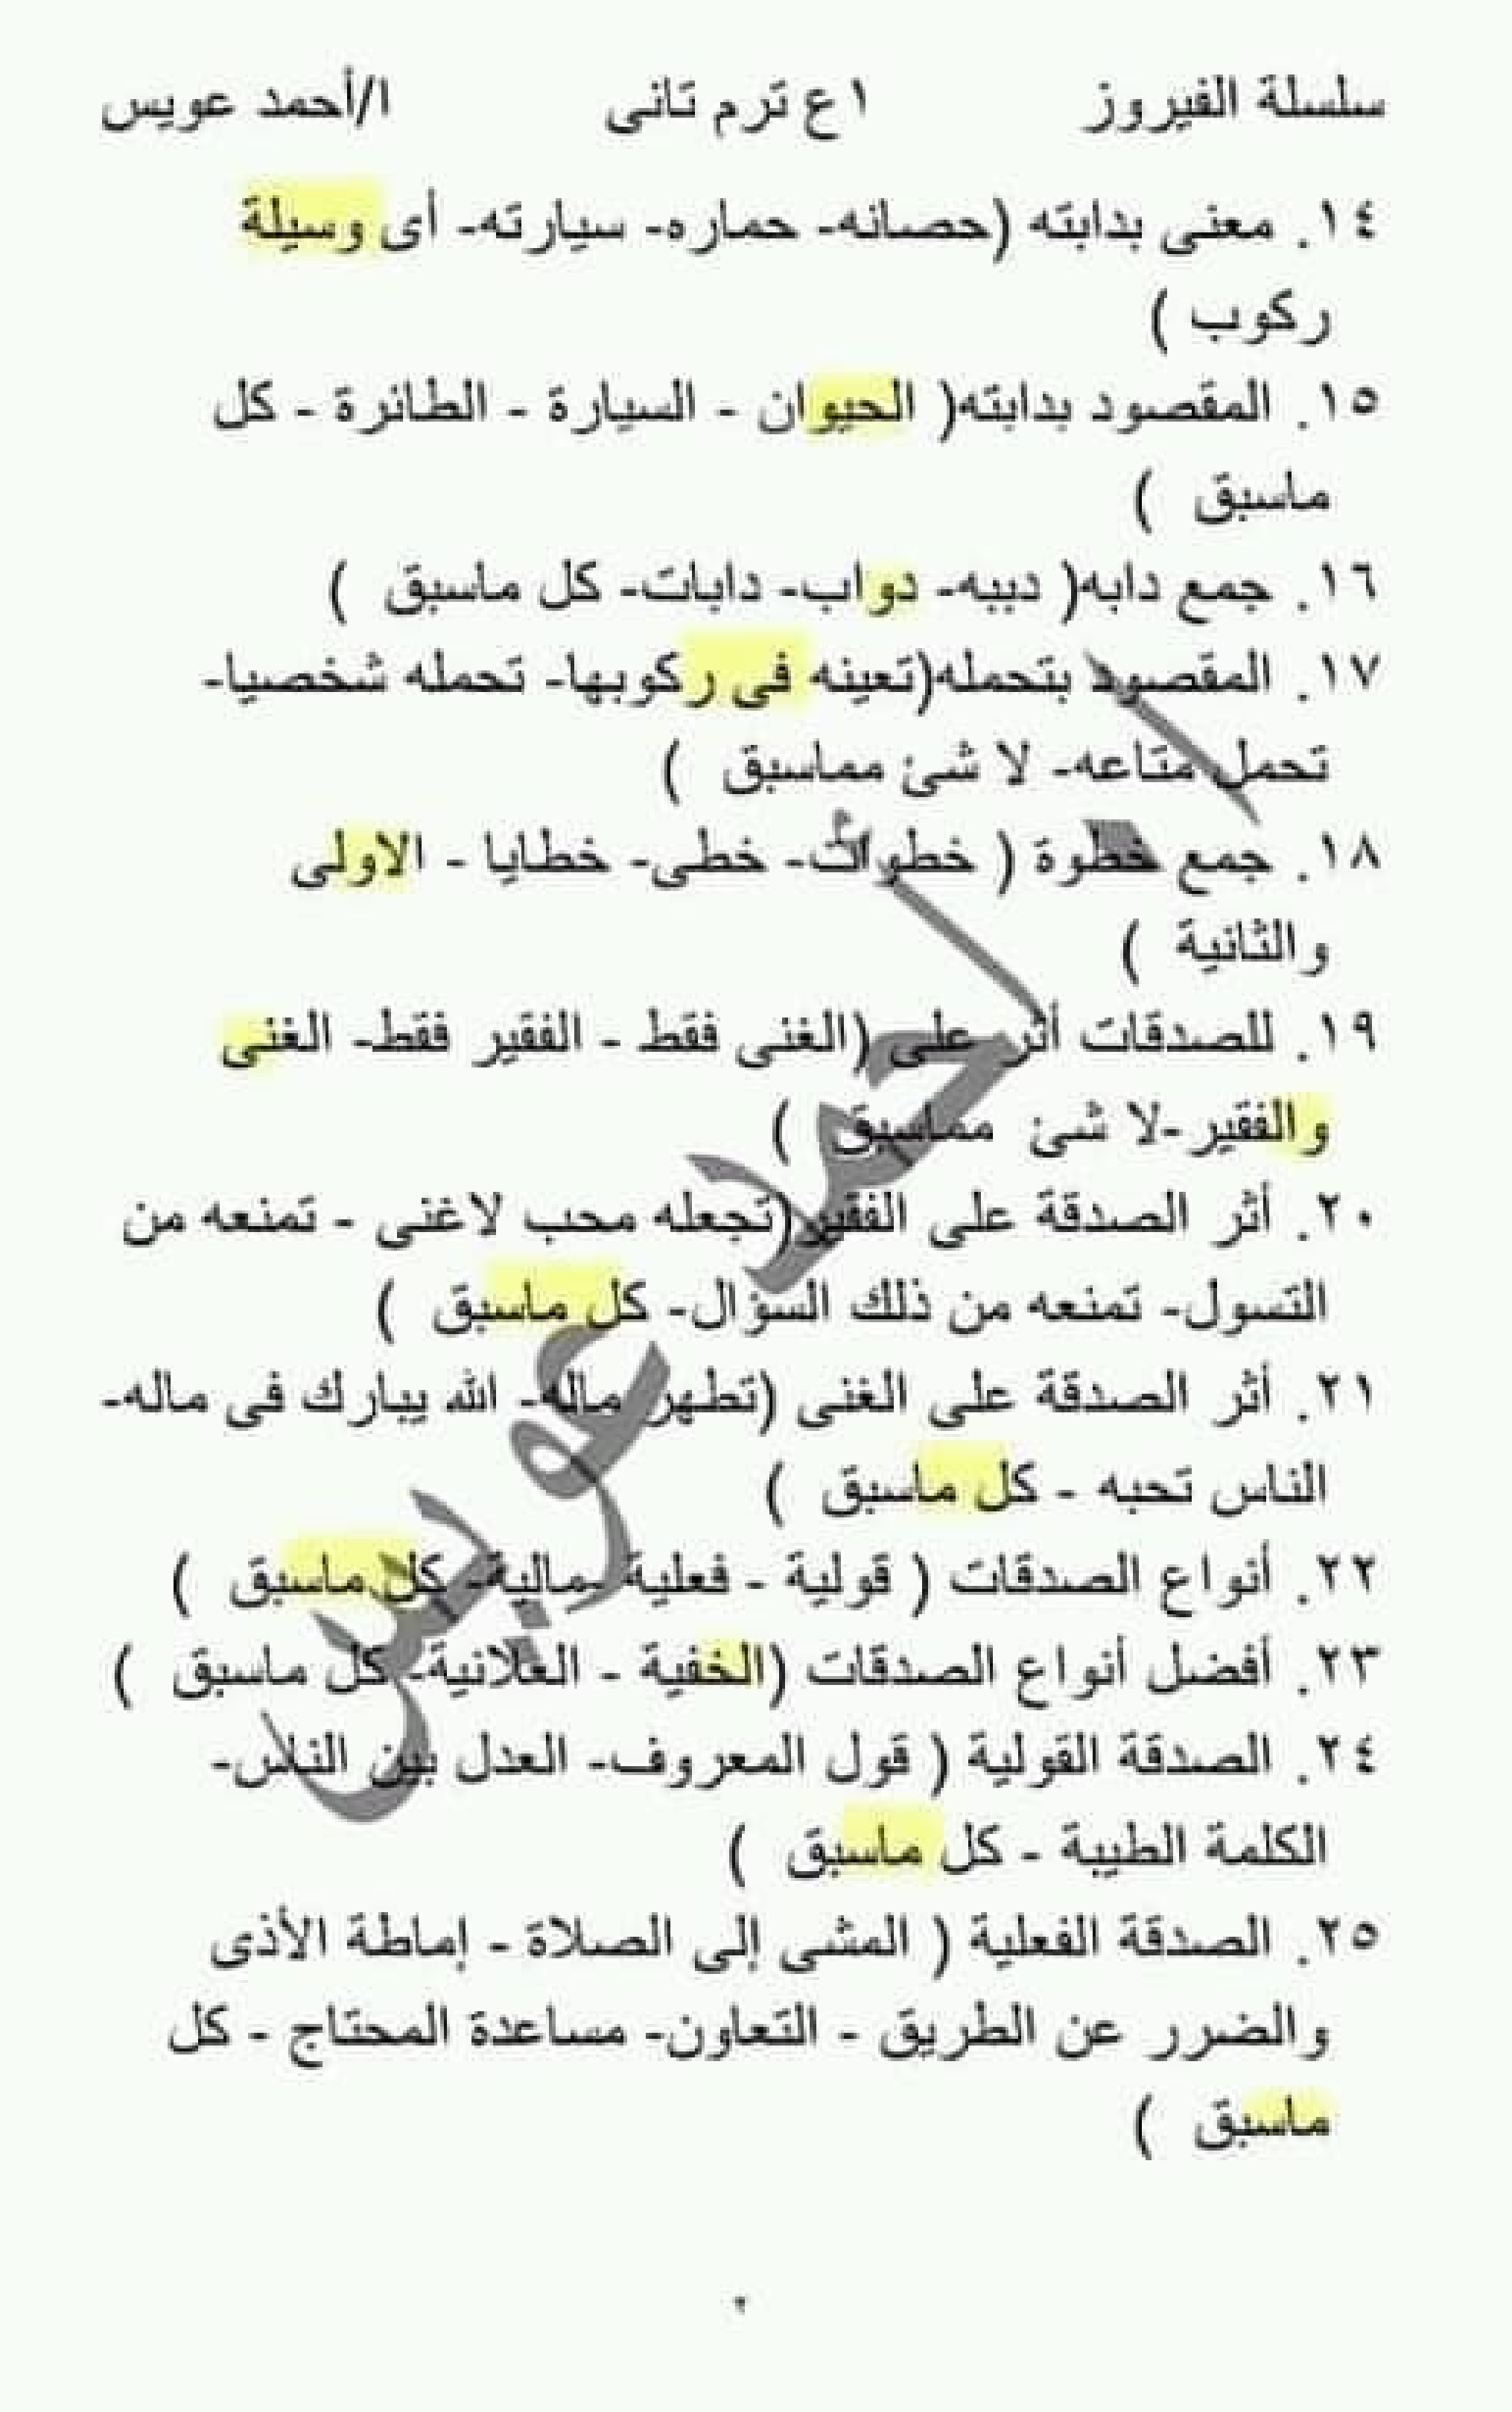 سلسلة الفيروز ١ع ترم تانى ا/أحمد عويس
١٤. معنى بدابته (حصانه- حماره- سيارته- أى وسيلة
ركوب )
١٥. المقصود بدابته( الحيوان - السيارة - الطائرة - كل
ماسبق )
١٦. جمع دابه( دببه- دواب- دابات- كل ماسبق )
١٧. المقصود بتحمله(تعينه فى ركوبها- تحمله شخصيا-
تحمل متاعه- لا شئ مماسبق )
١٨. جمع خطوة ( خطوات- خطى- خطايا - الاولى
والثانية )
١٩. للصدقات أثر على (الغنى فقط - الفقير فقط- الغنى
والفقير-لا شئ مماسبق )
٢٠. أثر الصدقة على الفقير(تجعله محب لاغنى - تمنعه من
التسول- تمنعه من ذلك السؤال- كل ماسبق )
٢١. أثر الصدقة على الغنى (تطهر ماله- الله يبارك فى ماله-
الناس تحبه - كل ماسبق )
٢٢. أنواع الصدقات ( قولية - فعلية -مالية- كل ماسبق )
٢٣. أفضل أنواع الصدقات (الخفية - العلانية- كل ماسبق )
٢٤. الصدقة القولية ( قول المعروف- العدل بين الناس-
الكلمة الطيبة - كل ماسبق )
٢٥. الصدقة الفعلية ( المشى إلى الصلاة - إماطة الأذى
والضرر عن الطريق - التعاون- مساعدة المحتاج - كل
ماسبق )
أ/أحمد عويس